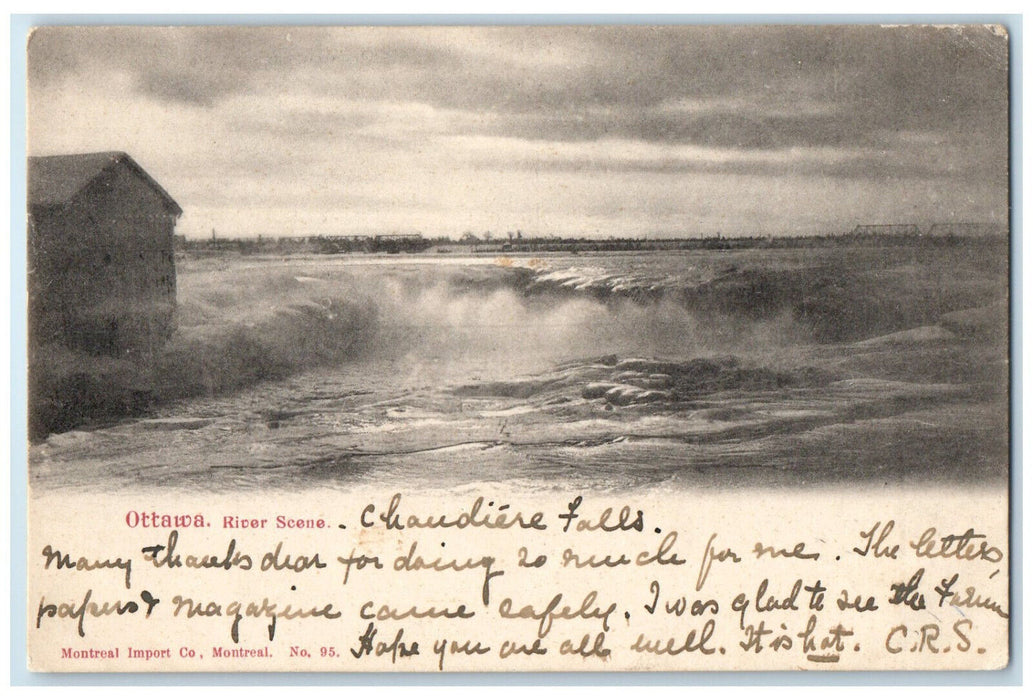 Ottawa. River Scene. . Chaudière Falls.
Many thanks dear for doing so much for me. The letters,
papers & magazine came safely. I was glad to see the Forum
Hope you are all well. It is hot. C.R.S.
Montreal Import Co, Montreal. No. 95.